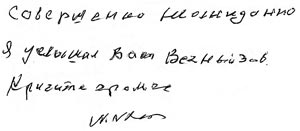 Совершенно неожиданно
я услышал Ваш Вечный зов.
Кричите громче